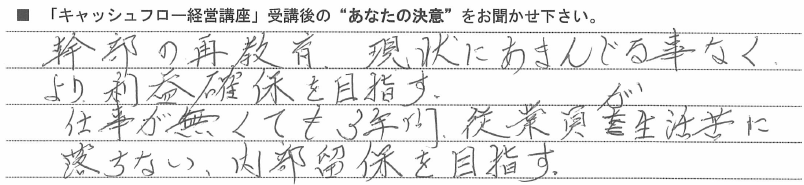 ■ 「キャッシュフロー経営講座」受講後の“あなたの決意”をお聞かせ下さい。
幹部の再教育、現状にあまんじる事なく、
より利益確保を目指す。
仕事が無くても3年間、従業員が生活苦に
落ちない、内部留保を目指す。